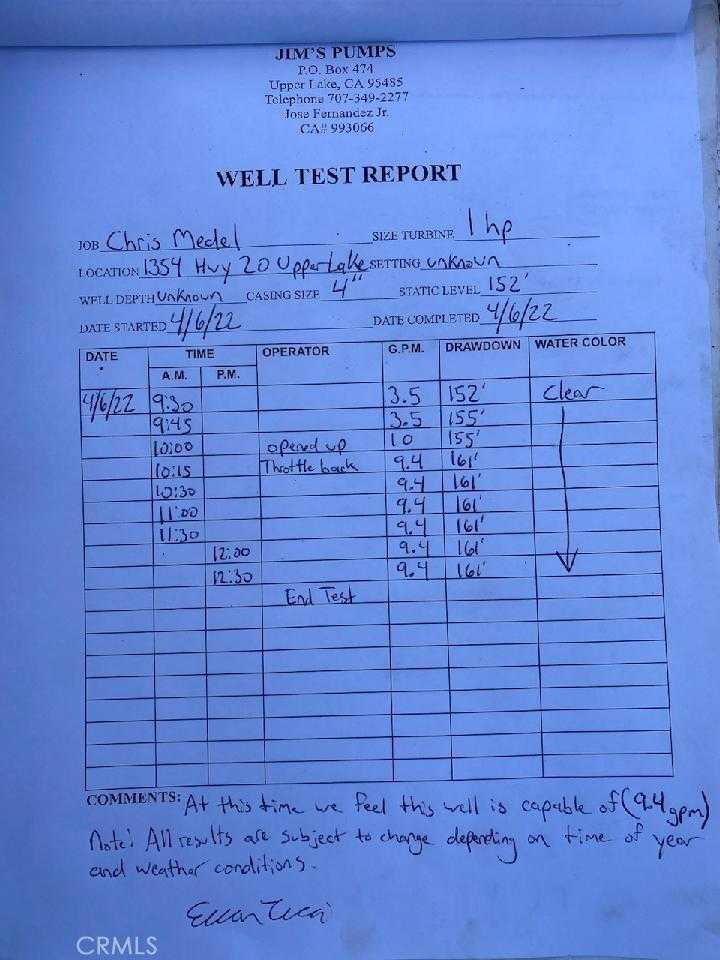 JIM'S PUMPS
P.O. Box 474
Upper Lake, CA 95485
Telephone 707-349-2277
Jose Fernandez Jr.
CA# 993066
WELL TEST REPORT
JOB Chris Medel SIZE TURBINE 1 hp
LOCATION 1354 Hwy 20 Upper Lake SETTING unknown
WELL DEPTH Unknown CASING SIZE 4" STATIC LEVEL 152'
DATE STARTED 4/6/22 DATE COMPLETED 4/6/22
DATE TIME OPERATOR G.P.M. DRAWDOWN WATER COLOR
A.M. P.M.
4/6/22 9:30 3.5 152' Clear
9:45 3.5 155'
10:00 opened up 10 155'
10:15 Throttle back 9.4 161'
10:30 9.4 161'
11:00 9.4 161'
11:30 9.4 161'
12:00 9.4 161'
12:30 9.4 161'
End Test
COMMENTS: At this time we feel this well is capable of (9.4 gpm)
Note: All results are subject to change depending on time of year
and weather conditions.
CRMLS